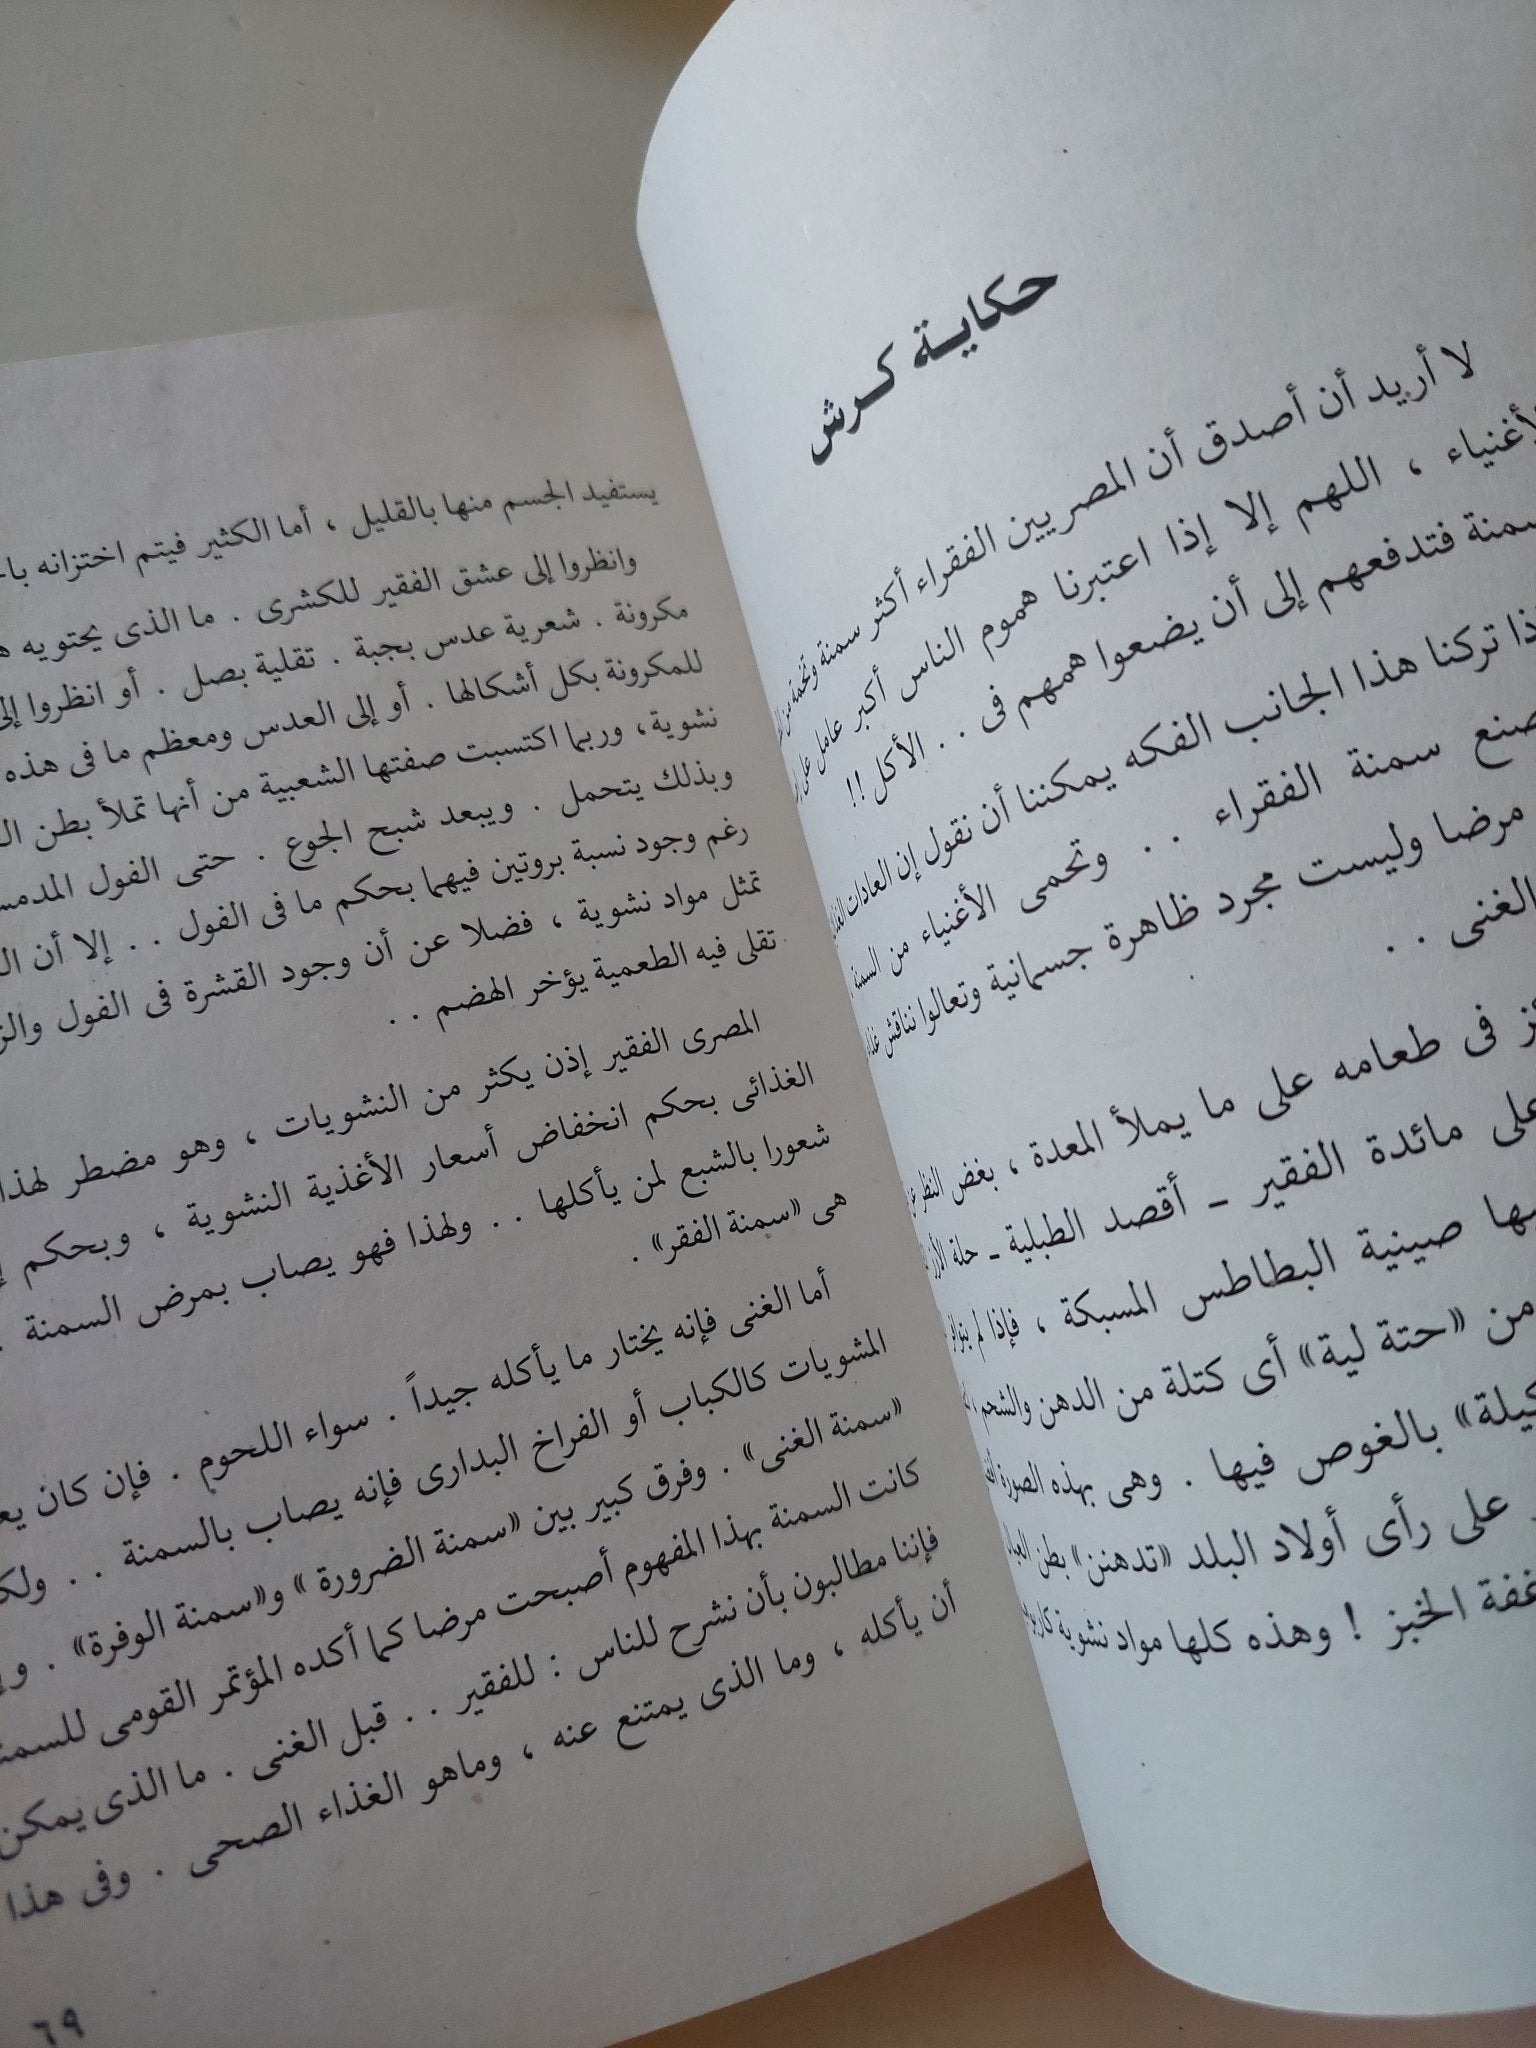 حكاية كرش
لا أريد أن أصدق أن المصريين الفقراء أكثر سمنة وتخمة من
الأغنياء ، اللهم إلا إذا اعتبرنا هموم الناس أكبر عامل على
فتدفعهم إلى أن يضعوا همهم فى . . الأكل !!
تركنا هذا الجانب الفكه يمكننا أن نقول إن العادات
سمنة الفقراء . . وتحمى الأغنياء من السمنة
مرضا وليست مجرد ظاهرة جسمانية وتعالوا نناقش
الغنى . .
فى طعامه على ما يملأ المعدة ، بغض النظر عن
على مائدة الفقير - أقصد الطبلية - حلة الأرز
صينية البطاطس المسبكة ، فإذا لم
من «حتة لية» أى كتلة من الدهن والشحم
بالغوص فيها . وهى بهذه الصورة
على رأى أولاد البلد «تدهنن» بطن
الخبز ! وهذه كلها مواد نشوية
يستفيد الجسم منها بالقليل ، أما الكثير فيتم اختزانه
وانظروا إلى عشق الفقير للكشرى . ما الذى يحتويه
مكرونة . شعرية عدس بجبة . تقلية بصل . أو انظروا إلى
للمكرونة بكل أشكالها . أو إلى العدس ومعظم ما فى هذه
نشوية، وربما اكتسبت صفتها الشعبية من أنها تملأ بطن
وبذلك يتحمل . ويبعد شبح الجوع . حتى الفول
رغم وجود نسبة بروتين فيهما بحكم ما فى الفول . . إلا أن
تمثل مواد نشوية ، فضلا عن أن وجود القشرة فى الفول
تقلى فيه الطعمية يؤخر الهضم . .
المصرى الفقير إذن يكثر من النشويات ، وهو مضطر لهذا
الغذائى بحكم انخفاض أسعار الأغذية النشوية ، وبحكم
شعورا بالشبع لمن يأكلها . . ولهذا فهو يصاب بمرض السمنة
هى «سمنة الفقر» .
أما الغنى فإنه يختار ما يأكله جيداً . سواء اللحوم . فإن كان
المشويات كالكباب أو الفراخ البدارى فإنه يصاب بالسمنة . .
«سمنة الغنى» . وفرق كبير بين «سمنة الضرورة» و«سمنة الوفرة» .
كانت السمنة بهذا المفهوم أصبحت مرضا كما أكده المؤتمر القومى
فإننا مطالبون بأن نشرح للناس : للفقير . . قبل الغنى . ما الذى يمكن
أن يأكله ، وما الذى يمتنع عنه ، وماهو الغذاء الصحى . وفى هذا
٦٩